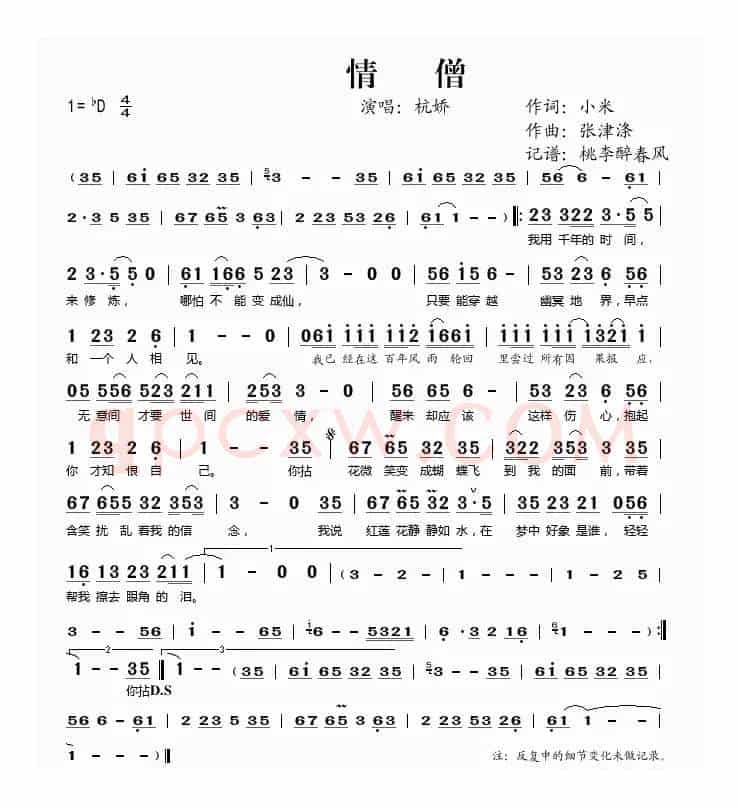 情 僧
1=♭D 4/4 演唱：杭娇 作词：小米
作曲：张津涤
记谱：桃李醉春风
（35 | 6i 65 32 35 | 3 - - 35 | 6i 65 32 35 | 56 6 - 61 |
2·3 5 35 | 67 65 3 63 | 2 23 53 26 | 61 1 - - ）‖: 23 322 3·5 5 |
我用 千年的 时 间，
2 3·5 5 0 | 61 166 5 23 | 3 - 0 0 | 56 i5 6 - | 53 23 6 56 |
来 修 炼， 哪怕 不 能 变 成仙， 只要 能穿 越 幽冥 地 界，早点
1 23 2 6 | 1 - - 0 | 061 111 112 1661 | 111 111 1321 1 |
和 一个 人 相 见。 我已 经在这 百年风 雨 轮回 里尝过 所有因 果报 应，
05 556 523 211 | 253 - - | 56 65 35 - | 53 23 6 56 |
无 意间 才要 世 间 的爱 情， 醒来 却应 该 这样 伤 心，抱起
1 23 2 6 | 1 - - 35 | 67 65 32 35 | 322 353 3 35 |
你 才知 恨 自 己。 你拈 花微 笑变 成蝴 蝶飞 到 我 的面 前，带着
67 655 32 353 | 3 - 0 35 | 67 65 32 3·5 | 35 23 21 056 |
含笑 扰 乱 看我 的信 念， 我说 红莲 花静 静如 水，在 梦中 好象 是谁， 轻轻
16 13 23 211 | 1 - 0 0 | （3 - 2 - | 1 - - - | 1 - - - |
帮我 擦去 眼角 的 泪。
3 - - 56 | i - - 65 | 6 - - 5321 | 6 ·3 2 16 | 1 - - - ）:‖
1 - - 35 ‖ 1 - - （35 | 6i 65 32 35 | 3 - - 35 | 6i 65 32 35 |
你拈D.S
56 6 - 61 | 2 23 5 35 | 67 65 3 63 | 2 23 53 26 | 61 1 - - |
1 - - - ）‖ 注：反复中的细节变化未做记录。